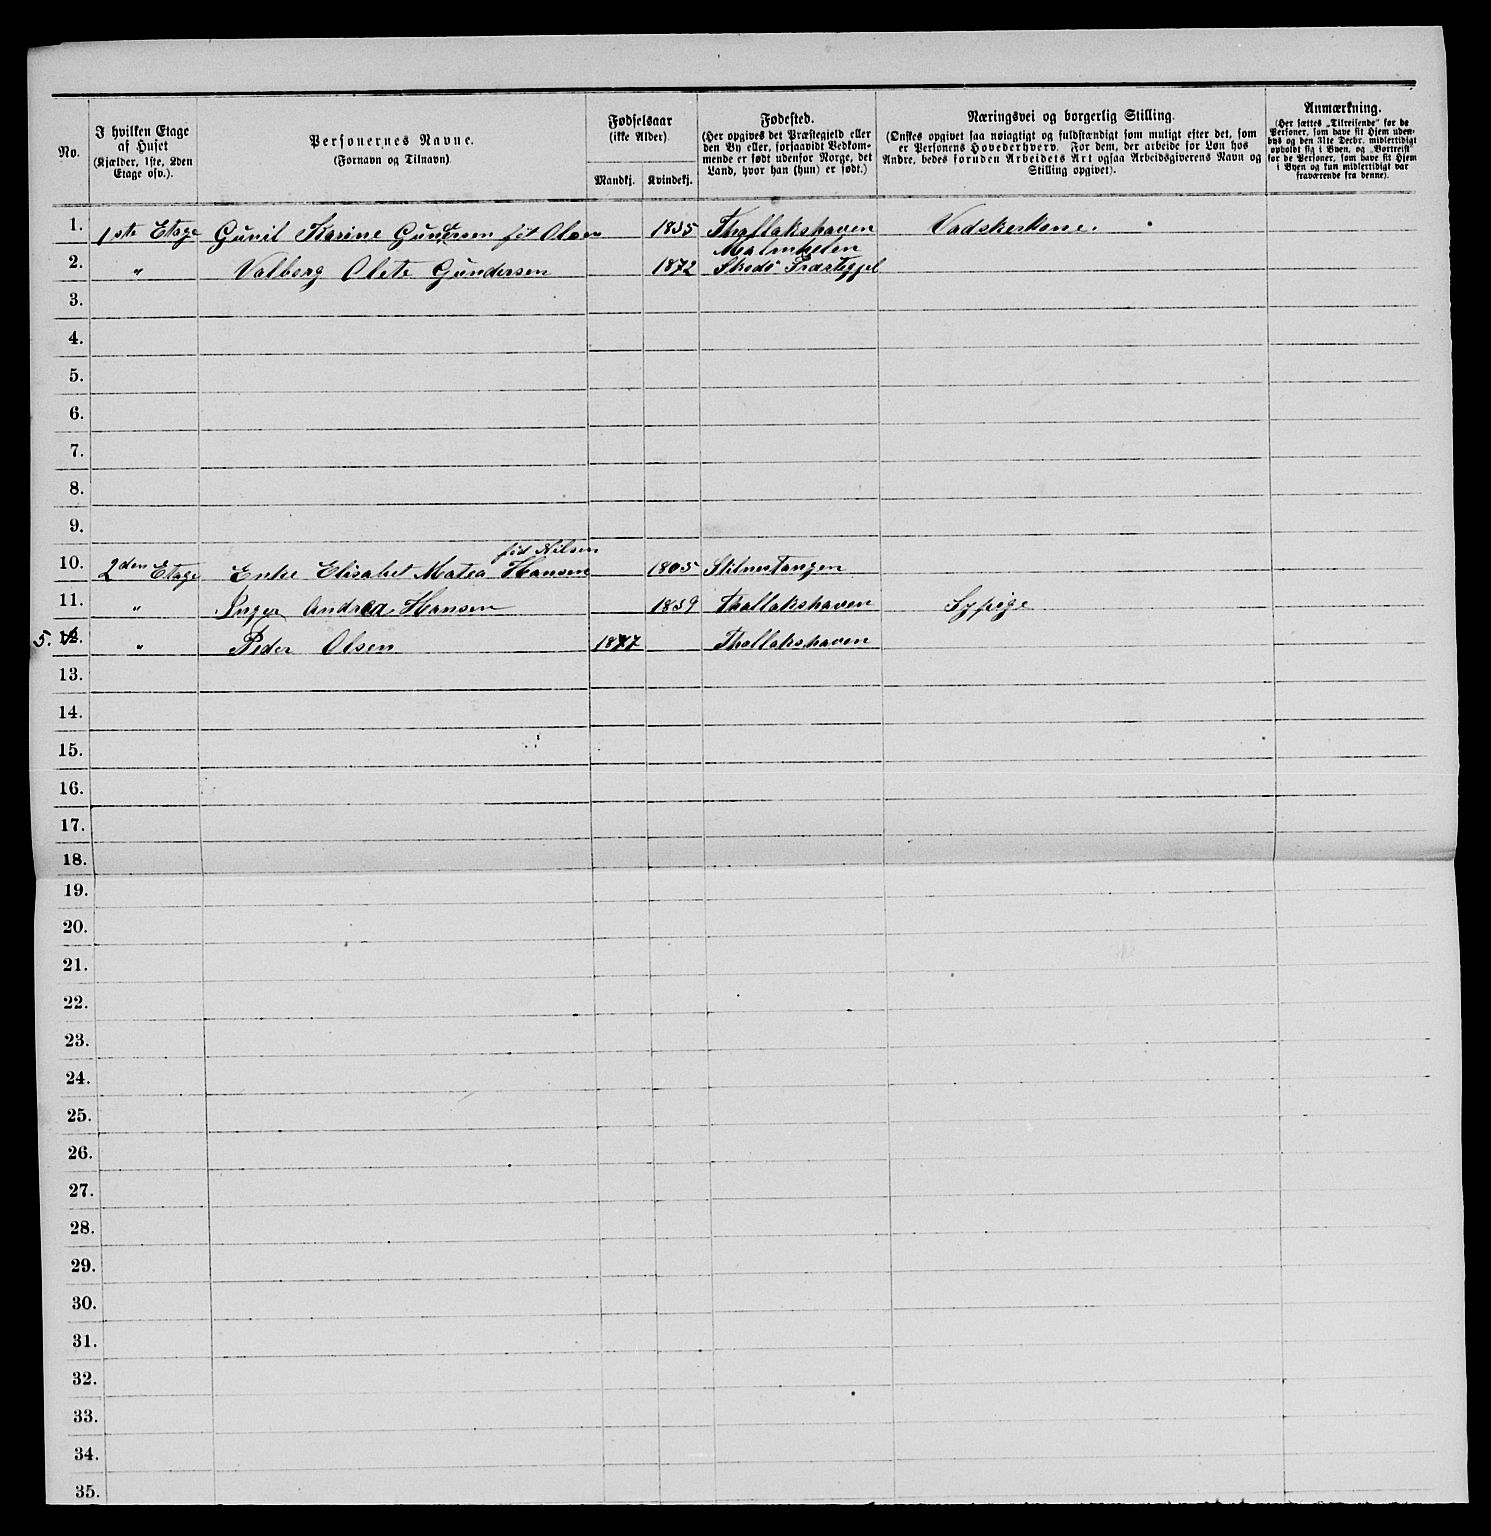 No.
I hvilken Etage
af Huset
(Kjælder, 1ste, 2den
Etage osv.).
Personernes Navne.
(Fornavn og Tilnavn)
Fødselsaar
(ikke Alder).
Mandkj.
Kvindekj.
Fødested.
(Her opgives det Præstegjeld eller
den By eller, forsaavidt Vedkom-
mende er født udenfor Norge, det
Land, hvor han (hun) er født.)
Næringsvei og borgerlig Stilling.
(Ønskes opgivet saa nøiagtigt og fuldstændigt som muligt efter det, som
er Personens Hovederhverv. For dem, der arbeide for Løn hos
Andre, bedes foruden Arbeidets Art ogsaa Arbeidsgiverens Navn og
Stilling opgivet).
Anmærkning.
(Her sættes „Tilreisende“ for de
Personer, som have sit Hjem uden-
bys og den 31te Decbr. midlertidigt
opholdt sig i Byen, og „Bortreist“
for de Personer, som have sit Hjem
i Byen og kun midlertidigt var
fraværende fra denne).
1. 1ste Etage Gunil Karine Gundersen fôt Olsen 1835 Thallakshaven Vadskerkone.
Malmhelen
2. „ Valborg Olete Gundersen 1872 Skedø
3.
4.
5.
6.
7.
8.
9.
fød Nilsen
10. 2den Etage Enke Elisabet Matea Hansen 1805 Stilnestangen
11. „ Inger Andrea Hansen 1859 Thallakshaven Sypige
5. 12. „ Peder Olsen 1877 Thallakshaven
13.
14.
15.
16.
17.
18.
19.
20.
21.
22.
23.
24.
25.
26.
27.
28.
29.
30.
31.
32.
33.
34.
35.